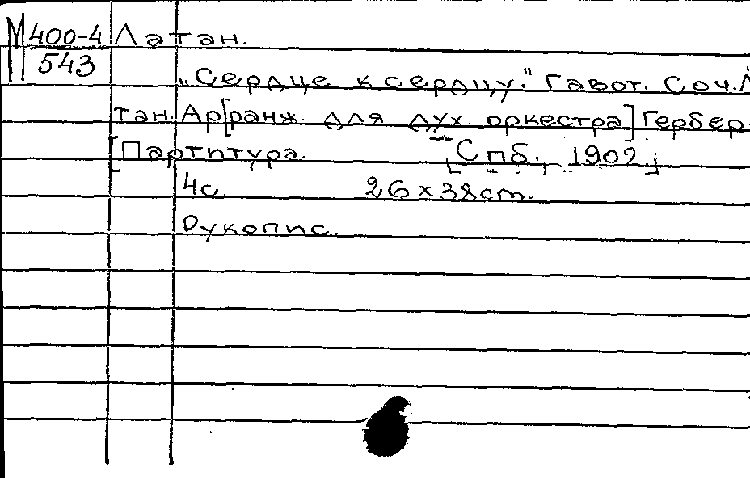 М 400-4 Латан.
543
„Сердце к сердцу." Гавот. Соч. Л
тан. Ар[ранж. для дух. оркестра] Гербер
[Партитура. [Спб., 1902.]
4с 26 x 38 cm.
Рукопис.